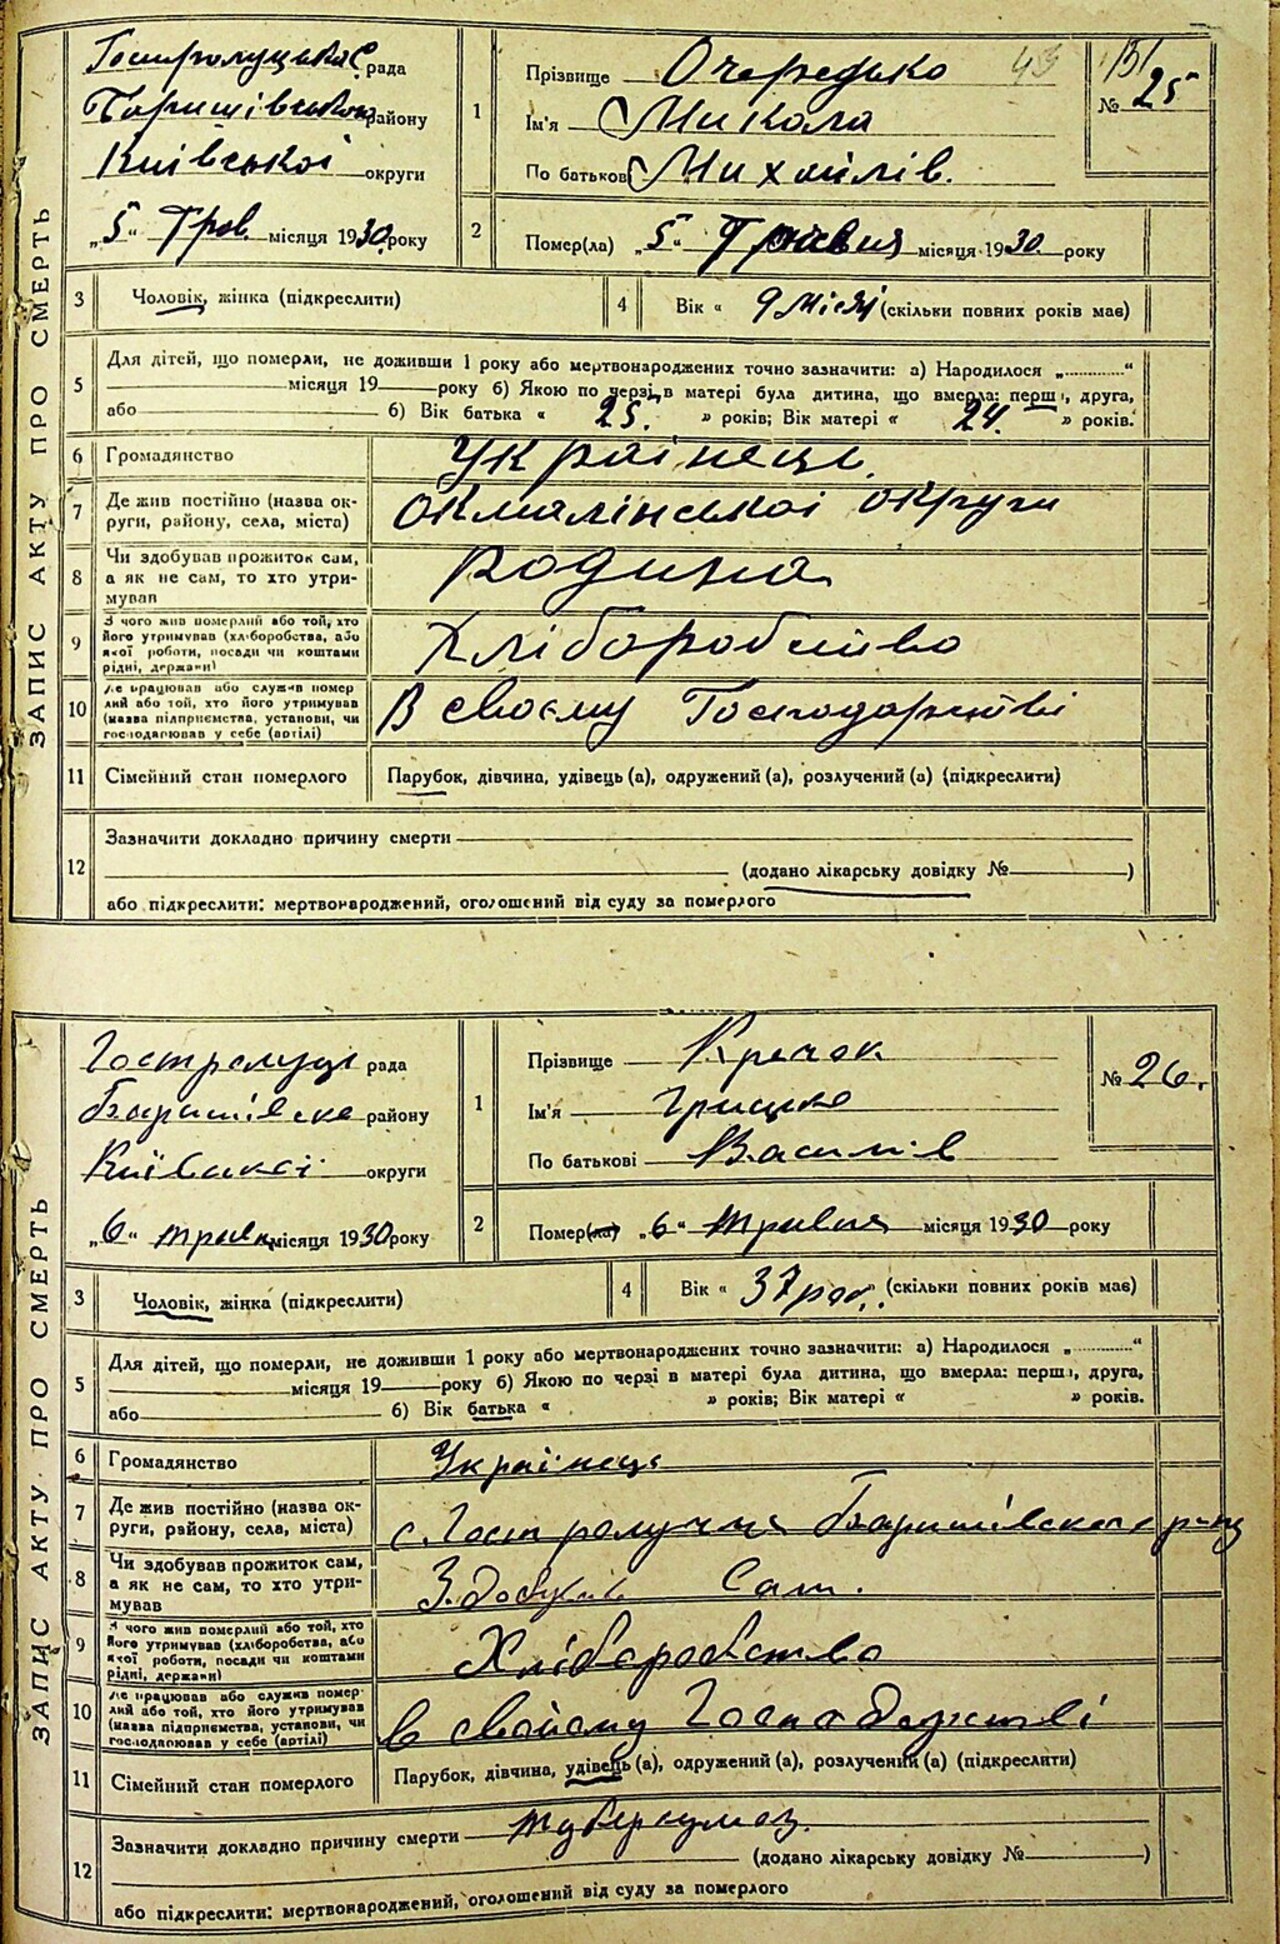 ЗАПИС АКТУ ПРО СМЕРТЬ
Гостролуцька рада
Баришівського району
Київської округи
„5“ Трав. місяця 1930 року
1 Прізвище Очередько 43
Ім'я Микола
По батькові Михайлів.
151
№ 25
2 Помер(ла) „5“ Травня місяця 1930 року
3 Чоловік, жінка (підкреслити)
4 Вік « 9 міся (скільки повних років має)
5 Для дітей, що померли, не доживши 1 року або мертвонароджених точно зазначити: а) Народилося „............“
місяця 19 року б) Якою по черзі в матері була дитина, що вмерла: перша, друга,
або б) Вік батька « 25. » років; Вік матері « 24. » років.
6 Громадянство Українець
7 Де жив постійно (назва округи, району, села, міста) округи
8 Чи здобував прожиток сам, а як не сам, то хто утримував родина
9 З чого жив померлий або той, хто його утримував (хліборобства, або якої роботи, посади чи коштами рідні, держави) Хліборобство
10 Де працював або служив померлий або той, хто його утримував (назва підприємства, установи, чи господарював у себе (артілі) В своєму Господарстві
11 Сімейний стан померлого Парубок, дівчина, удівець (а), одружений (а), розлучений (а) (підкреслити)
12 Зазначити докладно причину смерти
(додано лікарську довідку № )
або підкреслити: мертвонароджений, оголошений від суду за померлого
ЗАПИС АКТУ ПРО СМЕРТЬ
Гостролуць рада
Баришівське району
Київської округи
„6“ травн місяця 1930 року
1 Прізвище Кречок
Ім'я Грицько
По батькові Василів
№ 26.
2 Помер(ла) „6“ травня місяця 1930 року
3 Чоловік, жінка (підкреслити)
4 Вік « 37 рок. » (скільки повних років має)
5 Для дітей, що померли, не доживши 1 року або мертвонароджених точно зазначити: а) Народилося „............“
місяця 19 року б) Якою по черзі в матері була дитина, що вмерла: перша, друга,
або б) Вік батька « » років; Вік матері « » років.
6 Громадянство Українець
7 Де жив постійно (назва округи, району, села, міста) с. Гостролуччя Баришівського
8 Чи здобував прожиток сам, а як не сам, то хто утримував Здобував Сам.
9 З чого жив померлий або той, хто його утримував (хліборобства, або якої роботи, посади чи коштами рідні, держави) Хліборобство
10 Де працював або служив померлий або той, хто його утримував (назва підприємства, установи, чи господарював у себе (артілі) в свойому Господарстві
11 Сімейний стан померлого Парубок, дівчина, удівець (а), одружений (а), розлучений (а) (підкреслити)
12 Зазначити докладно причину смерти туберкульоз.
(додано лікарську довідку № )
або підкреслити: мертвонароджений, оголошений від суду за померлого